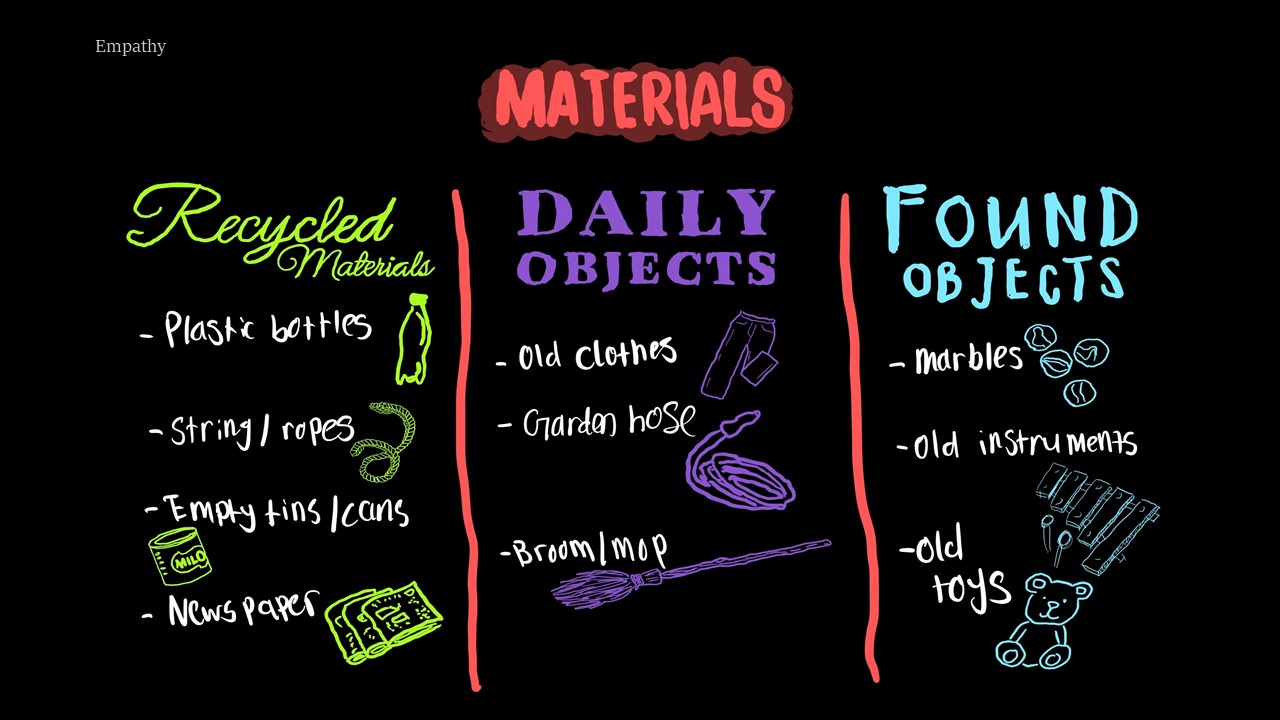 Empathy
MATERIALS
Recycled
Materials
- Plastic bottles
- String / ropes
- Empty tins / cans
MILO
- Newspaper
DAILY
OBJECTS
- Old clothes
- Garden hose
- Broom / Mop
FOUND
OBJECTS
- marbles
- Old instruments
- Old
toys